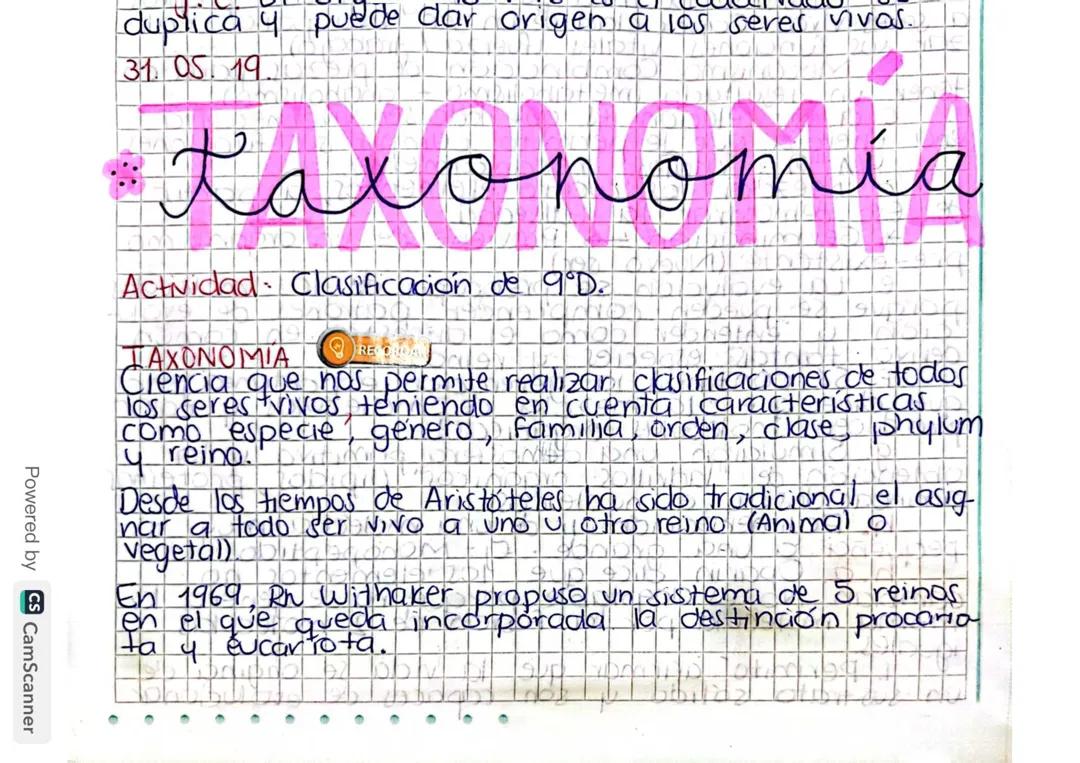 duplica y puede dar origen a los seres vivos.
31. 05. 19.
TAXONOMÍA
taxonomía
Actividad: Clasificación de 9°D.
TAXONOMÍA
RECORDAR
Ciencia que nos permite realizar clasificaciones de todos
los seres vivos, teniendo en cuenta características
como especie, género, familia, orden, clase, phylum
y reino.
Desde los tiempos de Aristóteles ha sido tradicional el asig-
nar a todo ser vivo a uno u otro reino (Animal o
vegetal).
En 1969, Rh Withaker propuso un sistema de 5 reinos
en el que queda incorporada la destinción procario-
ta y eucariota.
Powered by CS CamScanner